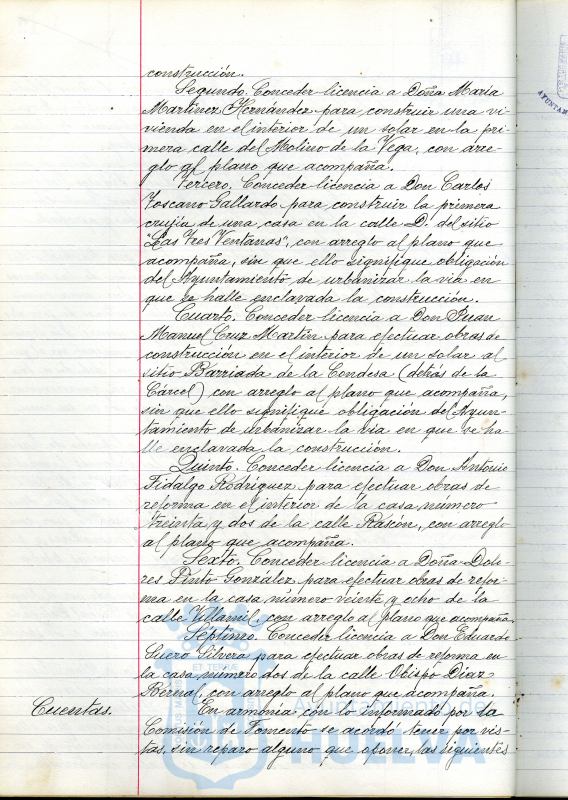 construcción.
Segundo. Conceder licencia a Doña María
Martínez Hernández para construir una vi-
vienda en el interior de un solar en la pri-
mera calle del Molino de la Vega, con arre-
glo al plano que acompaña.
Tercero. Conceder licencia a Don Carlos
Toscano Gallardo para construir la primera
crujía de una casa en la calle D. del sitio
"Las Tres Ventanas", con arreglo al plano que
acompaña, sin que ello signifique obligación
del Ayuntamiento de urbanizar la vía en
que se halle enclavada la construcción.
Cuarto. Conceder licencia a Don Juan
Manuel Cruz Martín para efectuar obras de
construcción en el interior de un solar al
sitio Barriada de la Condesa (detrás de la
Cárcel) con arreglo al plano que acompaña,
sin que ello signifique obligación del Ayun-
tamiento de urbanizar la vía en que se ha-
lle enclavada la construción.
Quinto. Conceder licencia a Don Antonio
Fidalgo Rodríguez para efectuar obras de
reforma en el interior de la casa número
treinta y dos de la calle Rascón, con arreglo
al plano que acompaña.
Sexto. Conceder licencia a Doña Dolo-
res Pinto González para efectuar obras de refor-
ma en la casa número veinte y ocho de la
calle Villamil, con arreglo al plano que acompaña.
Séptimo. Conceder licencia a Don Eduardo
Suero Silvera para efectuar obras de reforma en
la casa número dos de la calle Obispo Díaz
Bernal, con arreglo al plano que acompaña.
Cuentas.
En armonía con lo informado por la
Comisión de Fomento se acordó tener por vis-
tas, sin reparo alguno que oponer, las siguientes
ET TERRÆ
Ayuntamiento de
HUELVA